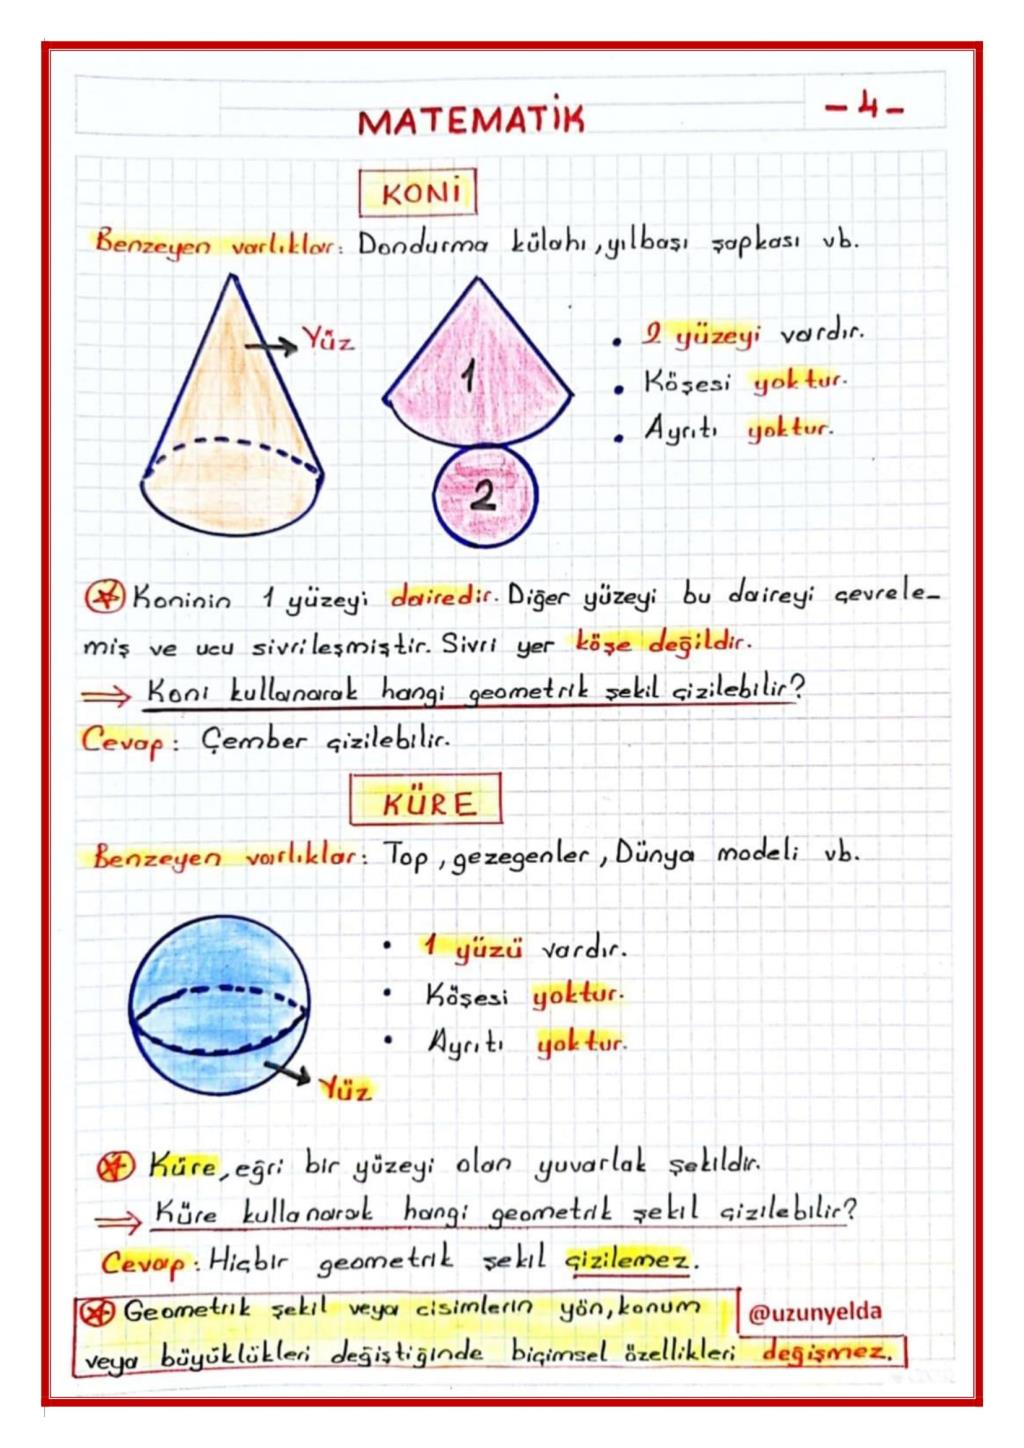 MATEMATİK
-4-
KONİ
Benzeyen varlıklar: Dondurma külahı, yılbaşı şapkası vb.
Yüz
1
2
• 2 yüzeyi vardır.
• Köşesi yoktur.
• Ayrıtı yoktur.
Koninin 1 yüzeyi dairedir. Diğer yüzeyi bu daireyi çevrele-
miş ve ucu sivrileşmiştir. Sivri yer köşe değildir.
⇒ Koni kullanarak hangi geometrik şekil çizilebilir?
Cevap: Çember çizilebilir.
KÜRE
Benzeyen varlıklar: Top, gezegenler, Dünya modeli vb.
• 1 yüzü vardır.
• Köşesi yoktur.
• Ayrıtı yoktur.
Yüz
Küre, eğri bir yüzeyi olan yuvarlak şekildir.
⇒ Küre kullanarak hangi geometrik şekil çizilebilir?
Cevap: Hiçbir geometrik şekil çizilemez.
Geometrik şekil veya cisimlerin yön, konum
@uzunyelda
veya büyüklükleri değiştiğinde biçimsel özellikleri değişmez.